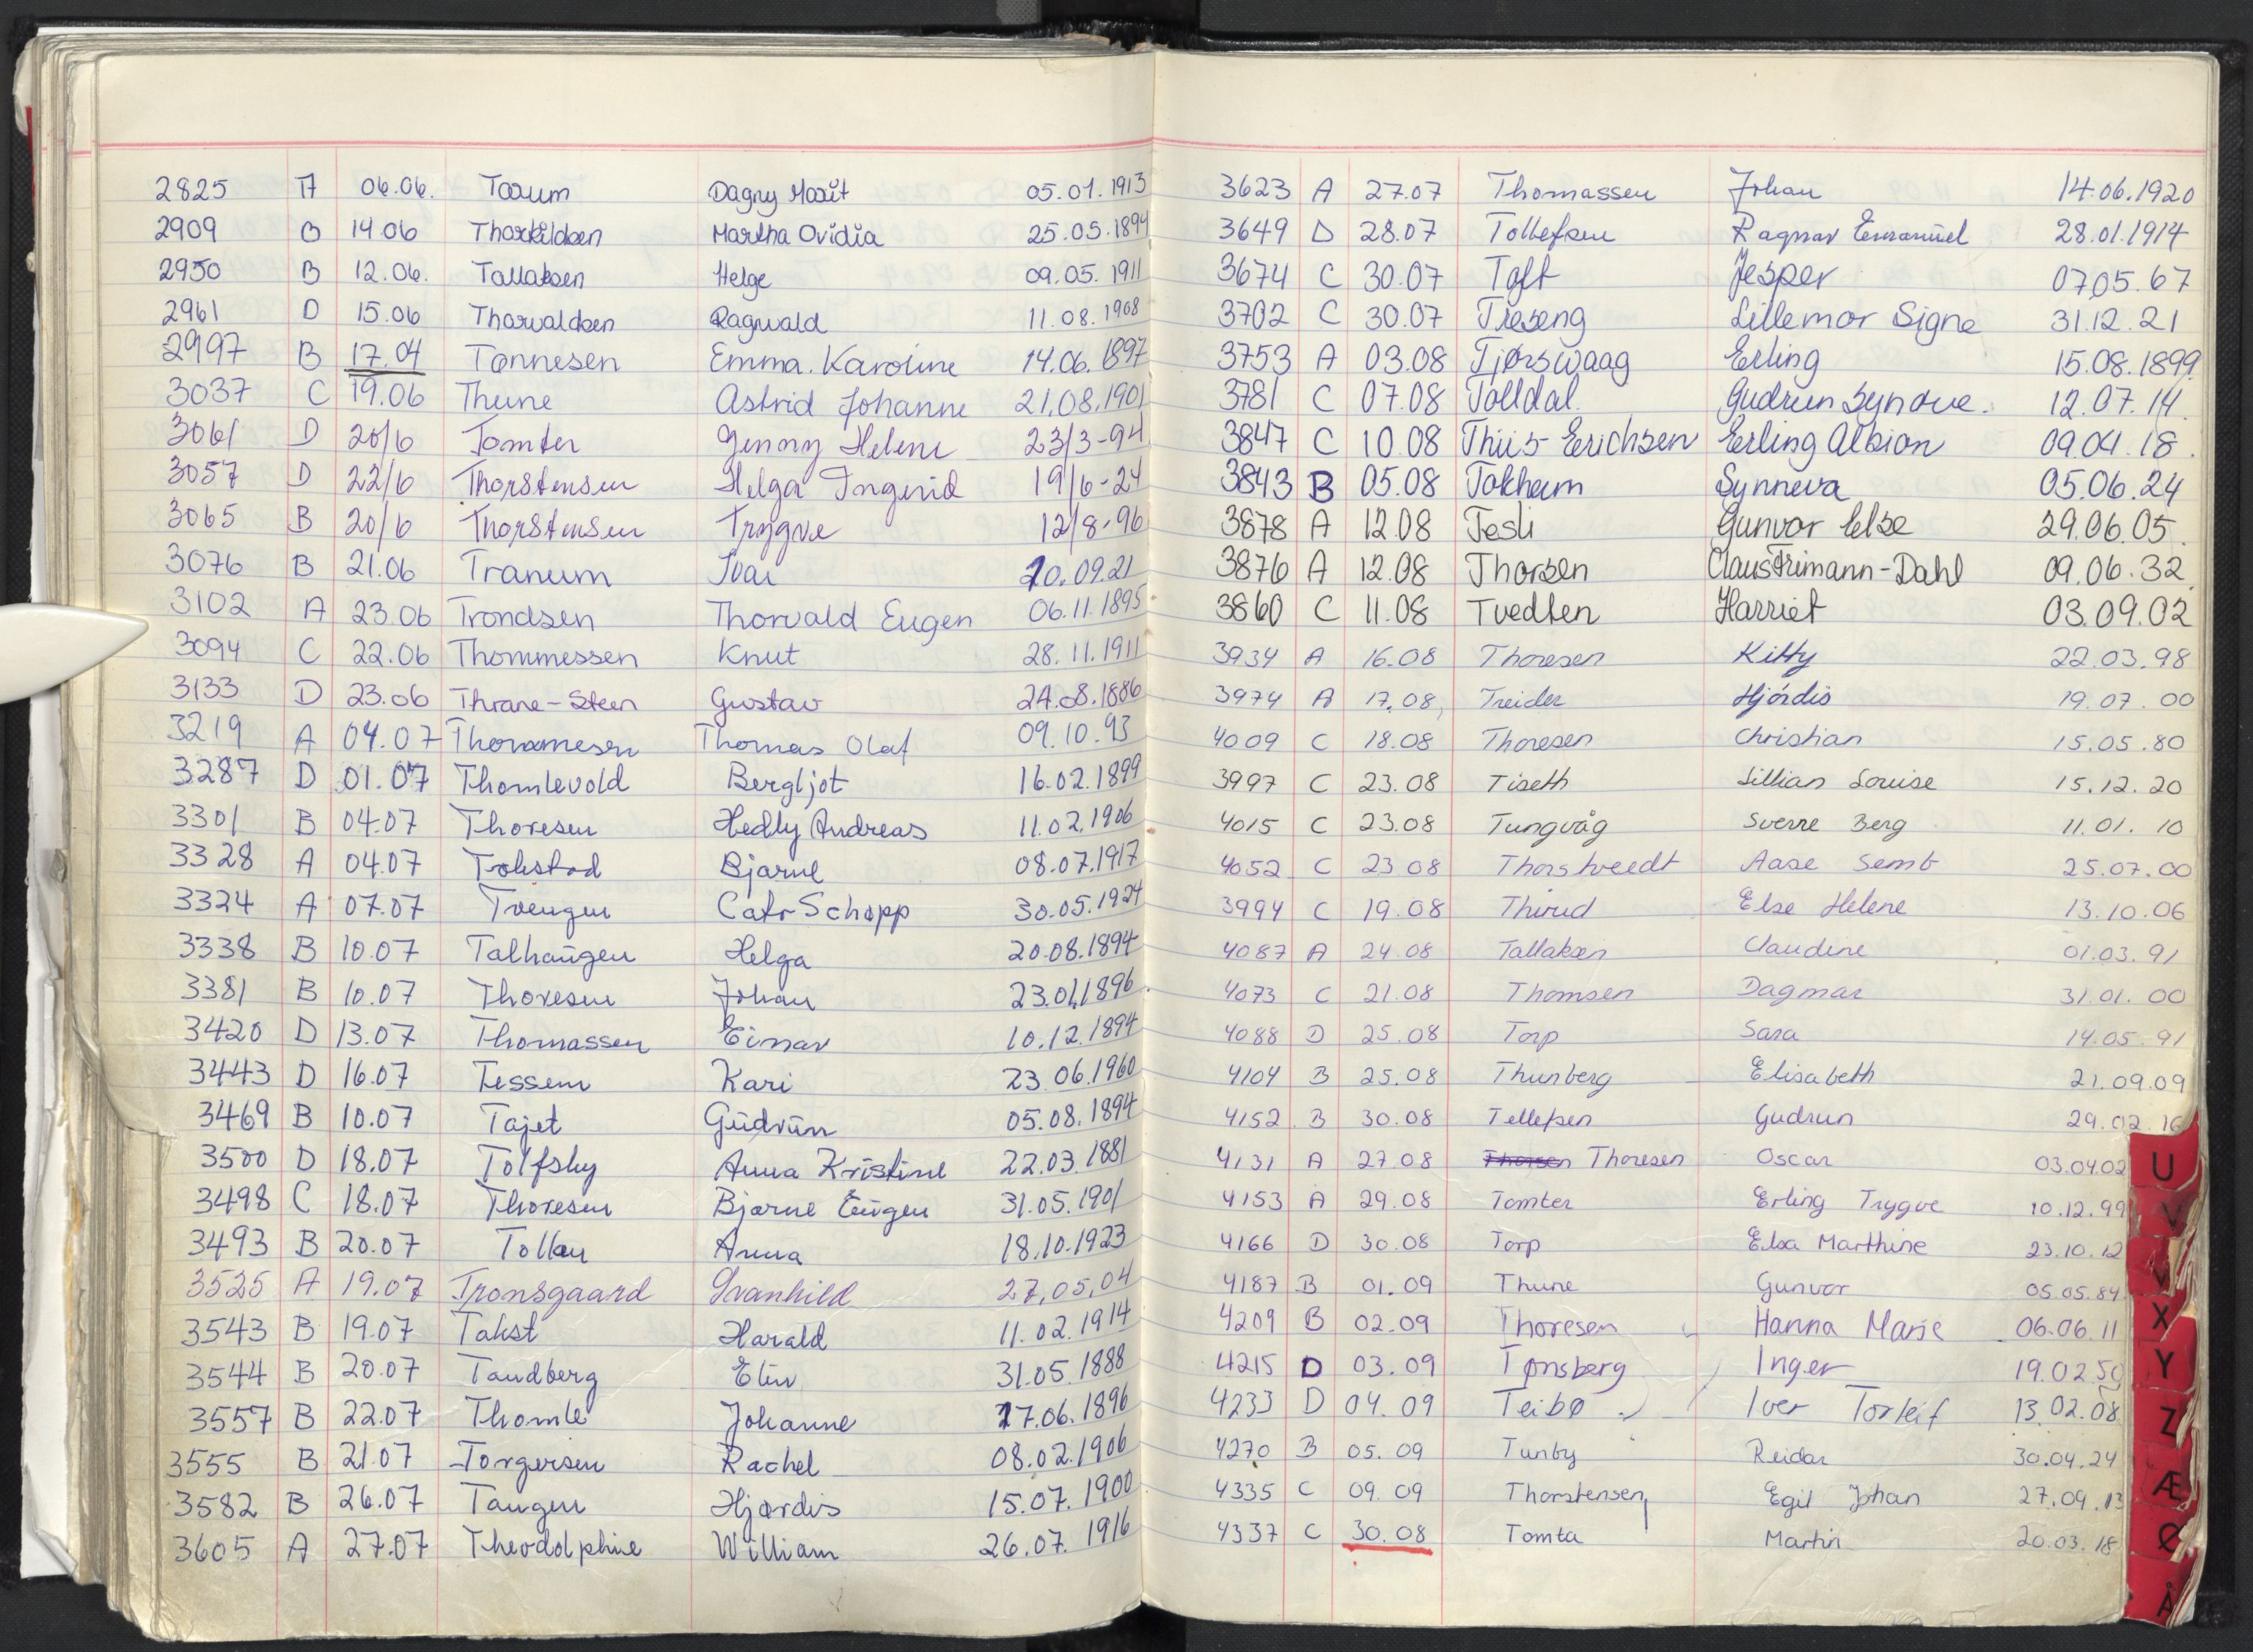 2825 A 06.06. Tarum Dagny Marit 05.01.1913
2909 B 14.06 Thorkildsen Martha Ovidia 25.05.1894
2950 B 12.06. Tallaksen Helge 09.05.1911
2961 D 15.06 Thorvaldsen Ragnvald 11.08.1908
2997 B 17.04 Tønnesen Emma Karoline 14.06.1897
3037 C 19.06 Thune Astrid Johanne 21.08.1901
3061 D 20/6 Tomter Jenny Helene 23/3-94
3057 D 22/6 Thorstensen Helga Ingerid 19/6-24
3065 B 20/6 Thorstensen Trygve 12/8-96
3076 B 21.06 Tranum Ivar 20.09.21
3102 A 23.06 Trondsen Thorvald Eugen 06.11.1895
3094 C 22.06 Thommessen Knut 28.11.1911
3133 D 23.06 Thrane-Steen Gustav 24.08.1886
3219 A 04.07 Thommesen Thomas Olaf 09.10.93
3287 D 01.07 Thomlevold Bergljot 16.02.1899
3301 B 04.07 Thoresen Hedly Andreas 11.02.1906
3328 A 04.07 Tokstad Bjarne 08.07.1917
3324 A 07.07 Tvengen Cato Schøpp 30.05.1924
3338 B 10.07 Talhaugen Helga 20.08.1894
3381 B 10.07 Thoresen Johan 23.01.1896
3420 D 13.07 Thomassen Einar 10.12.1894
3443 D 16.07 Tessem Kari 23.06.1960
3469 B 10.07 Tajet Gudrun 05.08.1894
3500 D 18.07 Tolfsby Anna Kristine 22.03.1881
3498 C 18.07 Thoresen Bjarne Eugen 31.05.1901
3493 B 20.07 Tollan Anna 18.10.1923
3525 A 19.07 Tronsgaard Svanhild 27.05.04
3543 B 19.07 Takst Harald 11.02.1914
3544 B 20.07 Tandberg Elin 31.05.1888
3557 B 22.07 Thomle Johanne 17.06.1896
3555 B 21.07 Torgersen Rachel 08.02.1906
3582 B 26.07 Tangen Hjørdis 15.07.1900
3605 A 27.07 Theodolphie William 26.07.1916
3623 A 27.07 Thomassen Johan 14.06.1920
3649 D 28.07 Tollefsen Ragnar Emanuel 28.01.1914
3674 C 30.07 Toft Jesper 07.05.67
3702 C 30.07 Treseng Lillemor Signe 31.12.21
3753 A 03.08 Tjørswaag Erling 15.08.1899
3781 C 07.08 Tolldal Gudrun Synøve. 12.07.14.
3847 C 10.08 Thiis-Erichsen Erling Albion 09.04.18.
3843 B 05.08 Tokheim Synneva 05.06.24
3878 A 12.08 Tesli Gunvor Else 29.06.05.
3876 A 12.08 Thorsen Claus Frimann-Dahl 09.06.32.
3860 C 11.08 Tvedten Harriet 03.09.02
3934 A 16.08 Thoresen Kitty 22.03.98
3974 A 17.08 Treider Hjördis 19.07.00
4009 C 18.08 Thoresen Christian 15.05.80
3997 C 23.08 Tiseth Lillian Louise 15.12.20
4015 C 23.08 Tungvåg Sverre Berg 11.01.10
4052 C 23.08 Thorstveedt Aase Semb 25.07.00
3994 C 19.08 Thirud Else Helene 13.10.06
4087 A 24.08 Tallaksen Claudine 01.03.91
4073 C 21.08 Thomsen Dagmar 31.01.00
4088 D 25.08 Torp Sara 14.05.91
4104 B 25.08 Thunberg Elisabeth 21.09.09
4152 B 30.08 Tellefsen Gudrun 29.02.16
4131 A 27.08 Thorsen Thoresen Oscar 03.04.02
4153 A 29.08 Tomter Erling Trygve 10.12.99
4166 D 30.08 Torp Elsa Marthine 23.10.12
4187 B 01.09 Thune Gunvor 05.05.84
4209 B 02.09 Thoresen Hanna Marie 06.06.11
4215 D 03.09 Tønsberg Inger 19.02.50
4233 D 04.09 Teibø Iver Torleif 13.02.08
4270 B 05.09 Tunby Reidar 30.04.24
4335 C 09.09 Thorstensen Egil Johan 27.09.13
4337 C 30.08 Tomta Martin 20.03.18
U
V
X
Y
Z
Æ
Ø
Å